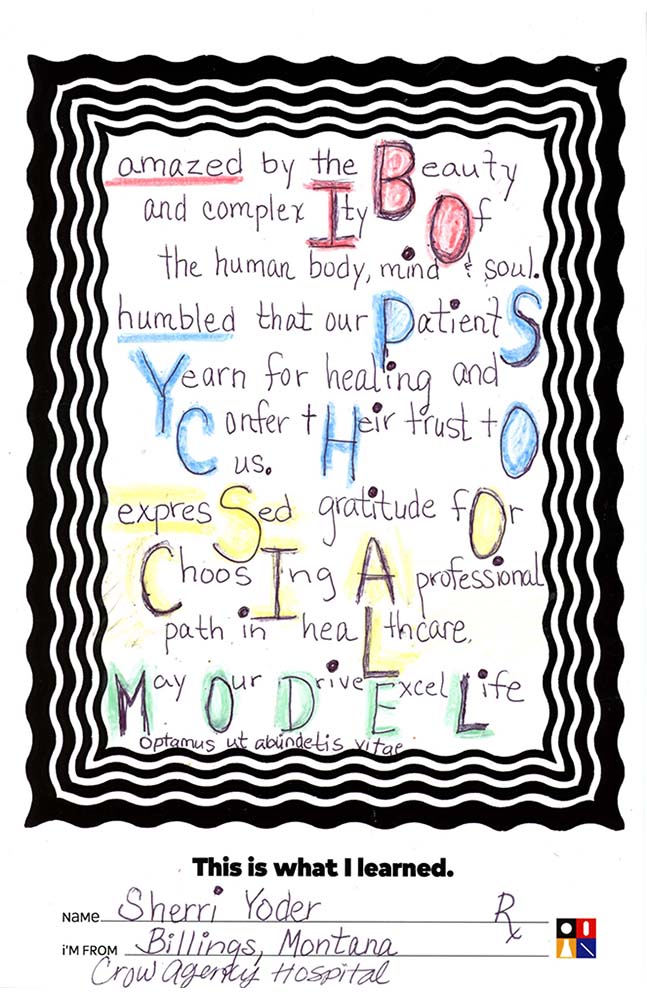 amazed by the Beauty
and complexIty Of
the human body, mind & soul.
humbled that our PatientS
Yearn for healing and
Confer tHeir trust tO
us.
expresSed gratitude fOr
ChoosIng A professional
path in heaLthcare.
May Our Drive Excel Life
Optamus ut abundetis vitae
This is what I learned.
NAMe Sherri Yoder Rx
i'M FROM Billings, Montana
Crow Agency Hospital